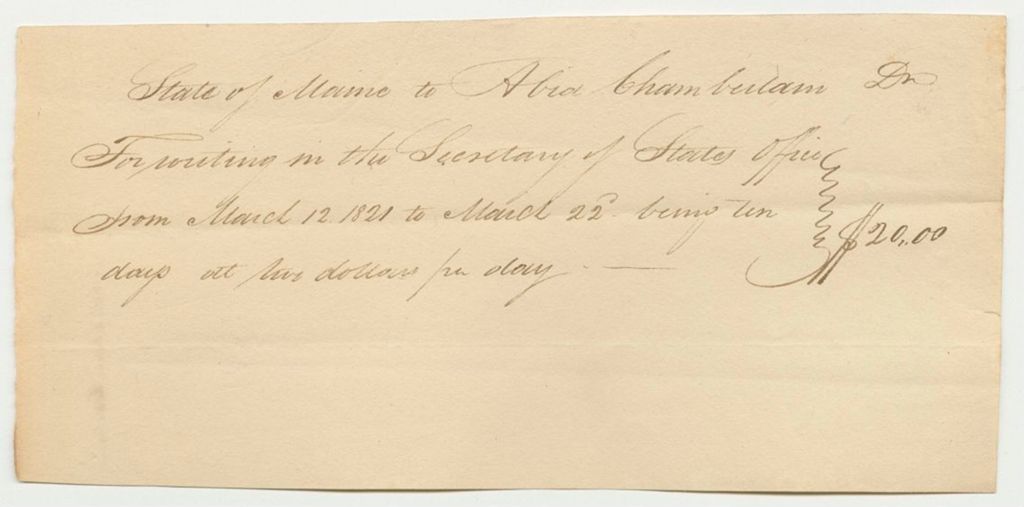 State of Maine to Abia Chamberlain Dr
For writing in the Secretary of States office
from March 12 1821 to March 22d being ten
days at two dollars per day — $20.00